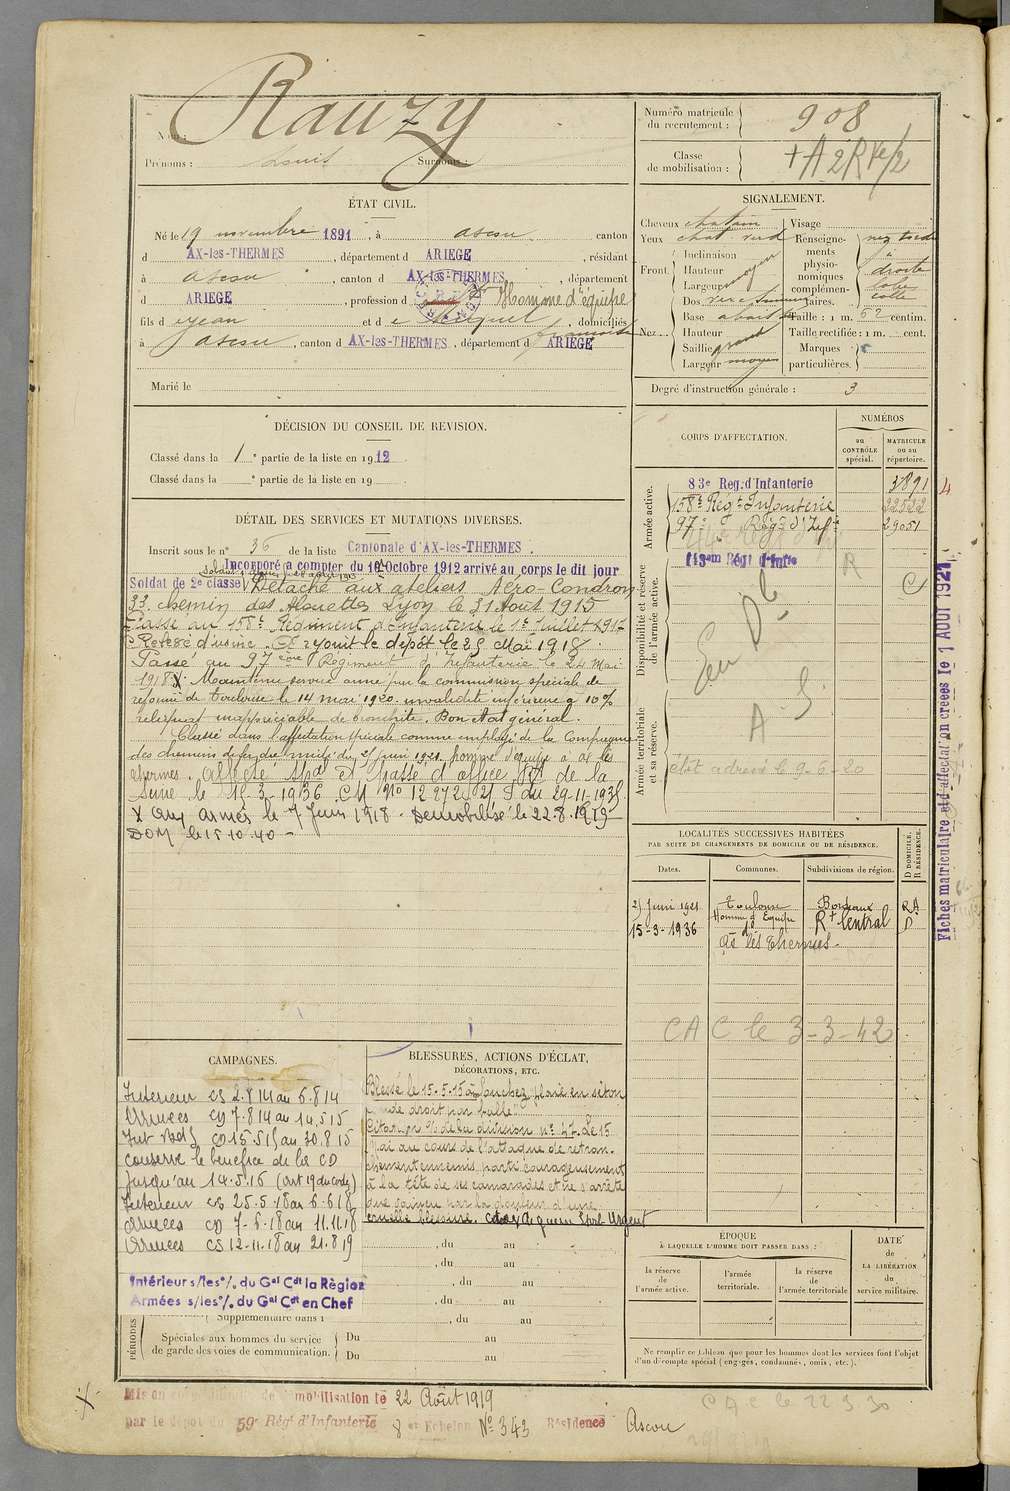 Rauzy
Nom :
Numéro matricule
du recrutement :
908
Prénoms : Louis Surnoms :
Classe
de mobilisation :
ÉTAT CIVIL.
Né le 19 novembre 1891, à Ascou, canton
d AX-les-THERMES, département d ARIEGE, résidant
à Ascou, canton d AX-les-THERMES, département
d ARIEGE, profession d Homme d'équipe
fils d Jean et d e Huguet françoise, domiciliés
à Ascou, canton d AX-les-THERMES, département d ARIEGE
Marié le
SIGNALEMENT.
Cheveux chatain
Yeux chat. verd
Front.
Inclinaison
Hauteur
Largeur moyen
Nez.
Dos
Base
Hauteur
Saillie grand
Largeur moyen
Visage
Renseigne-
ments
physio-
nomiques
complémen-
taires.
nez tordu
à
droite
lobe
collé
Taille : 1 m. 62 centim.
Taille rectifiée : 1 m. cent.
Marques
particulières.
Degré d'instruction générale : 3
DÉCISION DU CONSEIL DE REVISION.
Classé dans la 1e partie de la liste en 1912.
Classé dans la e partie de la liste en 19
DÉTAIL DES SERVICES ET MUTATIONS DIVERSES.
Inscrit sous le n° 36 de la liste Cantonale d'AX-les-THERMES.
Incorporé a compter du 10 Octobre 1912 arrivé au corps le dit jour
Soldat de 2e classe Détaché aux ateliers Aéro-Condron
33. chemin des Alouettes Lyon le 31 Août 1915
Passé au 158e Régiment d'Infanterie le 1er Juillet 1917
Relevé d'usine. Et rejoint le dépôt le 25 Mai 1918.
Passé au 97ème Régiment d'Infanterie le 24 Mai
1918 X. Maintenu service armé par la commission spéciale de
réforme de Toulouse le 14 mai 1920. invalidité inférieure à 10%
reliquat inappréciable de bronchite. Bon état général.
Classé dans l'affectation spéciale comme employé de la Compagnie
des chemins de fer du midi du 21 Juin 1921. homme d'équipe à ax les
thermes. Affecté Spal et passé d'office, Rgt de la
Seine le 15-3-1936. CM No 12272 21 S du 29-11-1935
X aux armés le 7 Juin 1918. Démobilisé le 22.8.1919
DOM le 15.10.40 -
CORPS D'AFFECTATION.
NUMÉROS
au
CONTRÔLE
spécial.
MATRICULE
ou au
répertoire.
Armée active.
83e Reg. d'Infanterie 3891
158e Régt Infanterie 22522
97e Régt d'Infie 29051
143em Régt d'Infie
Disponibilité et réserve
de l'armée active.
R
Armée territoriale
et sa réserve.
A
état adressé le 9-6-20
Fiches matriculaire et d'affectation créées le 1 AOUT 1921
LOCALITÉS SUCCESSIVES HABITÉES
PAR SUITE DE CHANGEMENTS DE DOMICILE OU DE RÉSIDENCE.
Dates.
Communes.
Subdivisions de région.
D DOMICILE.
R RÉSIDENCE.
21 Juin 1921 Toulouse Bordeaux RA
Homme d'Equipe
15-3-1936 do Rt Central D
ax les Thermes.
CAC le 3-3-42
CAMPAGNES.
Interieur CS 2.8.14 au 6.8.14
Armées CD 7.8.14 au 14.5.15
Int Bles CD 15.5.15 au 30.8.15
conserve le bénéfice de la CD
jusqu'au 14.5.16 (art 19 du code)
Interieur CS 25.5.18 au 6.6.18
Armées CD 7-6-18 au 11.11.18
Armées CS 12-11-18 au 21.8.19
Intérieur s/les °/. du Gal Cdt la Région
Armées s/les °/. du Gal Cdt en Chef
BLESSURES, ACTIONS D'ÉCLAT,
DÉCORATIONS, ETC.
Blessé le 15-5-15 à Souchez plaie en séton
coude droit par balle
Citation o/ de la division no 47. Le 15
Mai au cours de l'attaque de retran-
chements ennemis, parti courageusement
à la tête de ses camarades et ne s'arrête
que vaincu par la douleur d'une
cruelle blessure. Croix de guerre Etoile Argent
, du au
, du au
, du au
, du au
PÉRIODES
Supplémentaire dans l , du au
Spéciales aux hommes du service
de garde des voies de communication.
Du au
Du au
ÉPOQUE
À LAQUELLE L'HOMME DOIT PASSER DANS :
la réserve
de
l'armée active.
l'armée
territoriale.
la réserve
de
l'armée territoriale
DATE
de
LA LIBÉRATION
du
service militaire.
Ne remplir ce tableau que pour les hommes dont les services font l'objet
d'un décompte spécial (engagés, condamnés, omis, etc.).
Mis en congé de démobilisation le 22 Août 1919
par le dépôt du 59e Régt d'Infanterie 8 er Echelon No 343 Résidence Ascou
CAC le 22 3 30